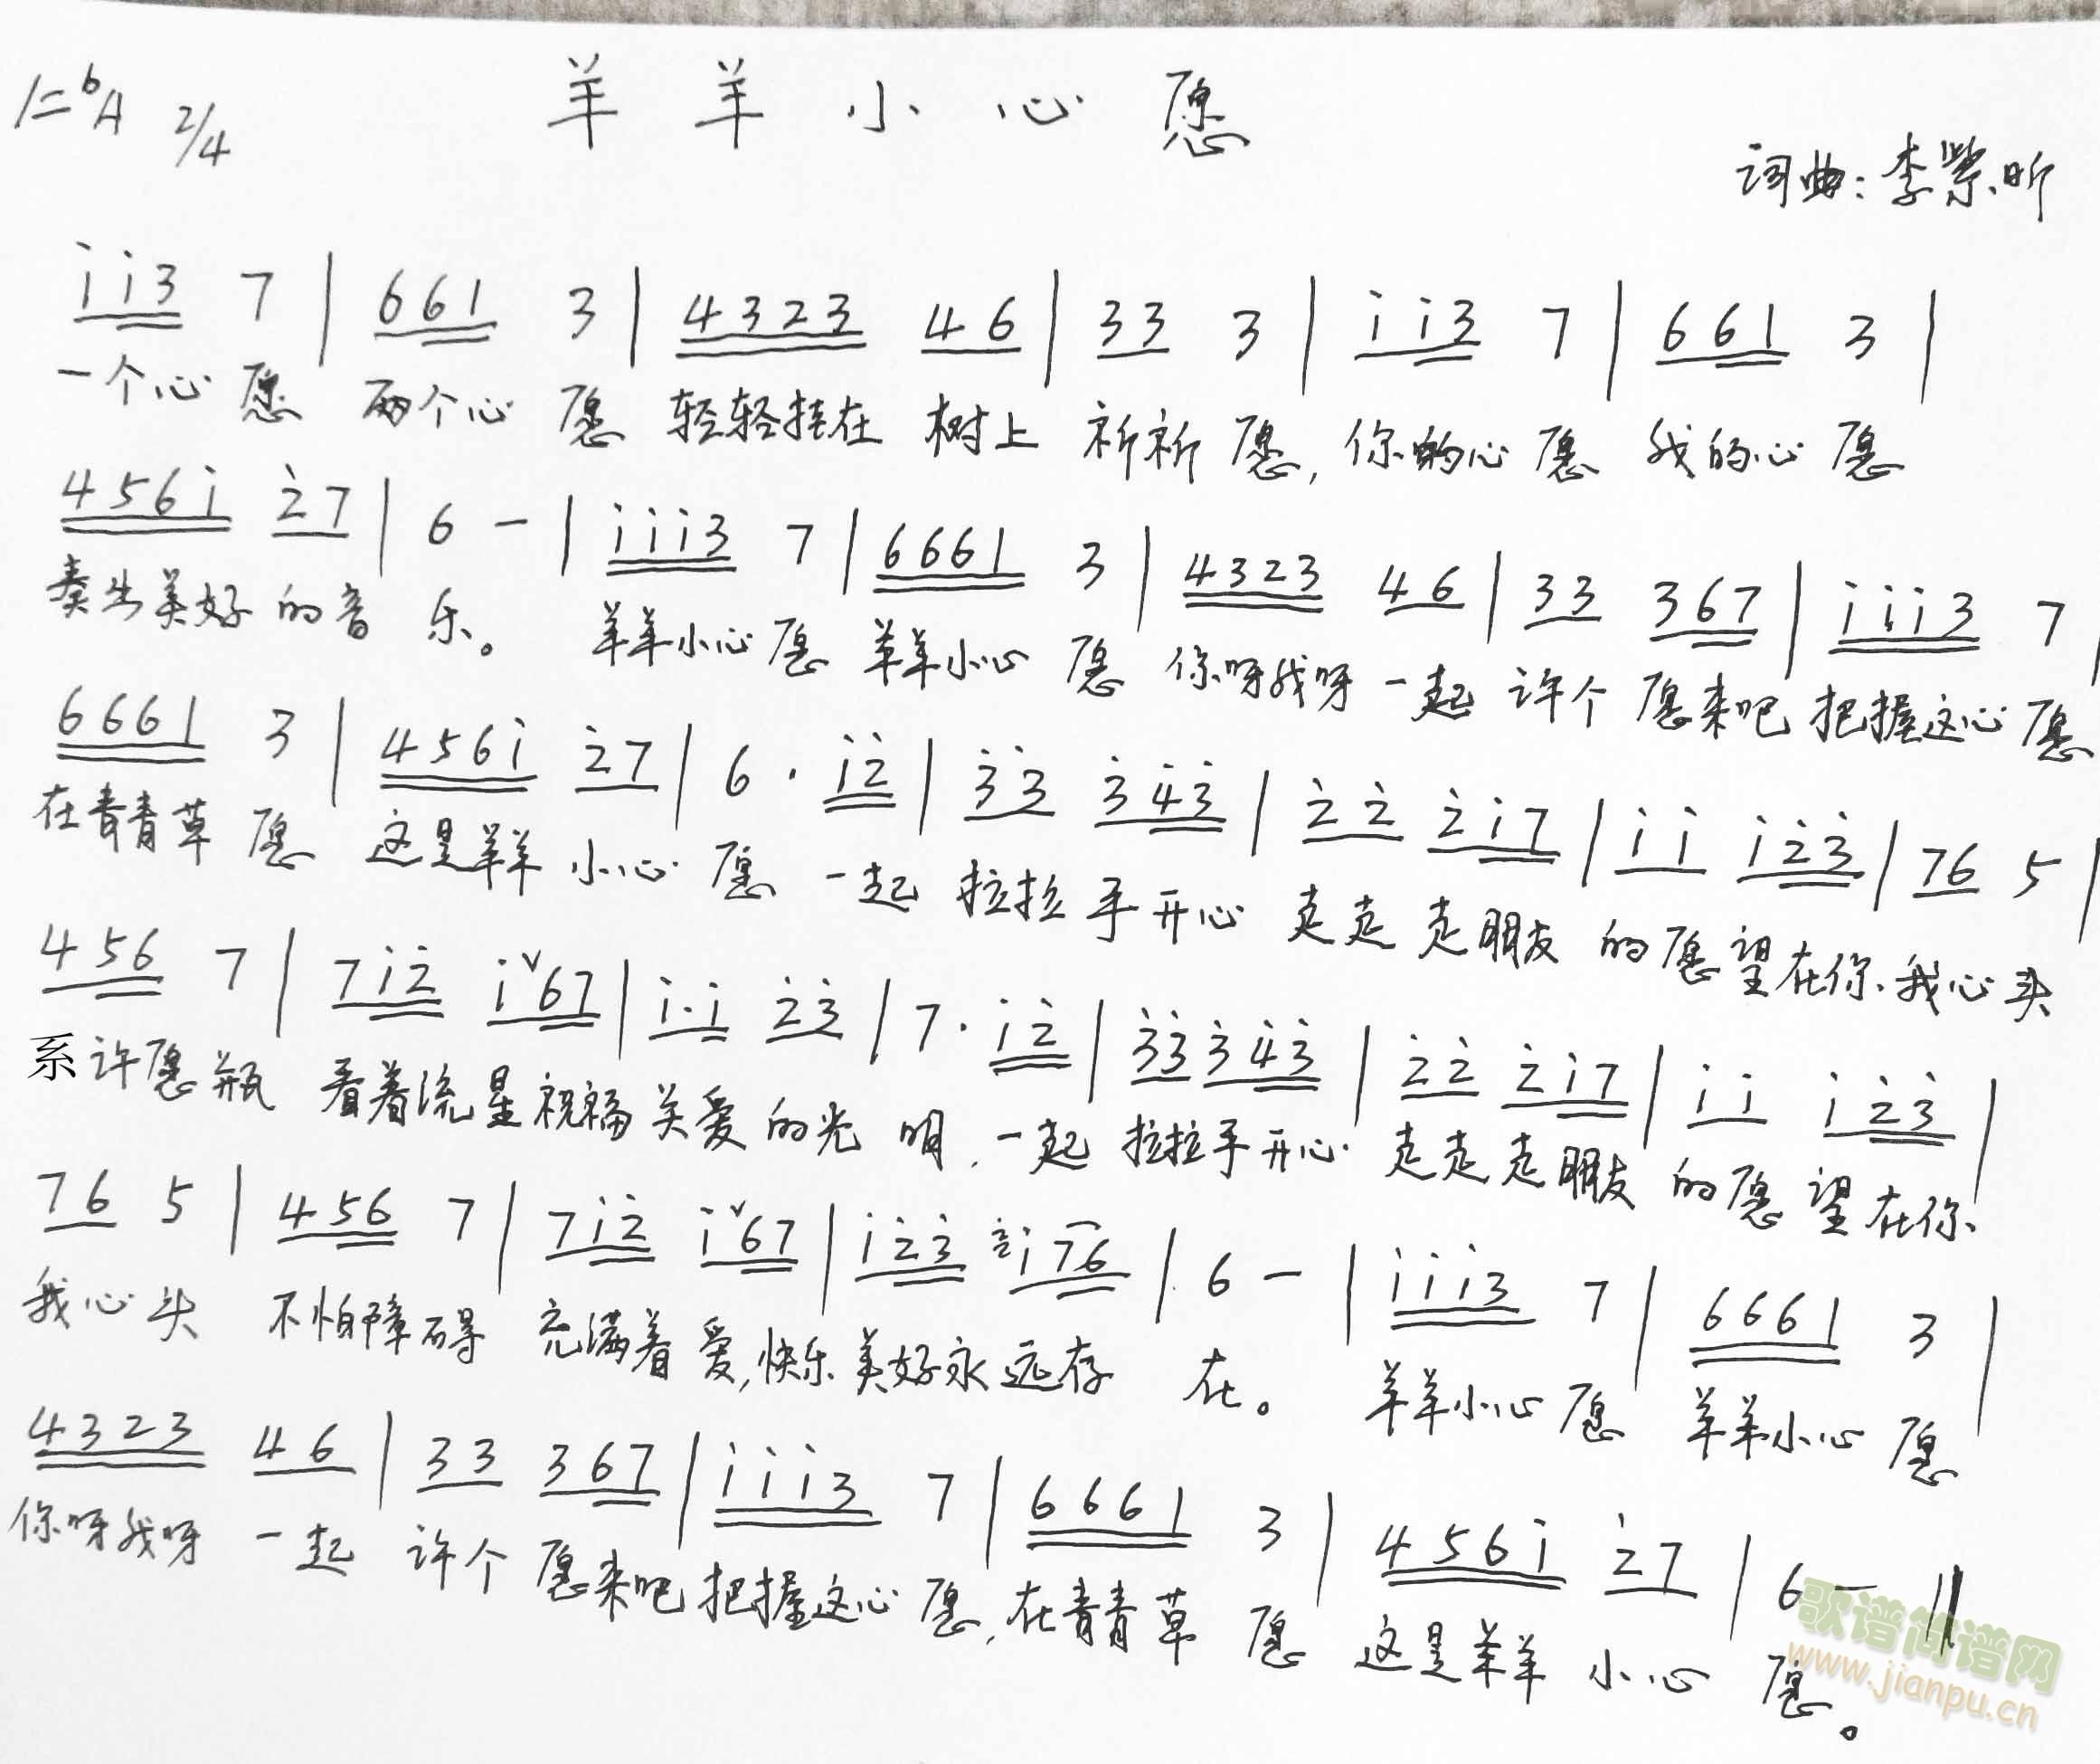 1=ᵇA 2/4 羊羊小心愿
词曲：李紫昕
i̇ i̇ 3 7 | 6 6 1 3 | 4 3 2 3 4 6 | 3 3 3 | i̇ i̇ 3 7 | 6 6 1 3 |
一个心愿 两个心愿 轻轻挂在 树上 祈祈愿, 你的心愿 我的心愿
4 5 6 i̇ 2̇ 7 | 6 - | i̇ i̇ i̇ 3 7 | 6 6 6 1 3 | 4 3 2 3 4 6 | 3 3 3 6 7 | i̇ i̇ i̇ 3 7 |
奏出美好 的音 乐。 羊羊小心愿 羊羊小心愿 你呀我呀 一起 许个 愿来吧 把握这心愿
6 6 6 1 3 | 4 5 6 i̇ 2̇ 7 | 6 · i̇ 2̇ | 3̇ 3̇ 3̇ 4̇ 3̇ | 2̇ 2̇ 2̇ i̇ 7 | i̇ i̇ i̇ 2̇ 3̇ | 7 6 5 |
在青青草 愿 这是羊羊 小心 愿 一起 拉拉 手开心 走走 走朋友 的愿 望在你、我心头
4 5 6 7 | 7 i̇ 2̇ i̇ ᵛ 6 7 | i̇ · i̇ 2̇ 3̇ | 7 · i̇ 2̇ | 3̇ 3̇ 3̇ 4̇ 3̇ | 2̇ 2̇ 2̇ i̇ 7 | i̇ i̇ i̇ 2̇ 3̇ |
系许愿瓶 看着流星祝福 关爱 的光 明, 一起 拉拉手开心 走走走朋友 的愿 望在你、
7 6 5 | 4 5 6 7 | 7 i̇ 2̇ i̇ ᵛ 6 7 | i̇ 2̇ 3̇ ²̇ i̇ 7 6 | 6 - | i̇ i̇ i̇ 3 7 | 6 6 6 1 3 |
我心头 不怕障碍 充满着 爱,快乐 美好永远存 在。 羊羊小心愿 羊羊小心愿
4 3 2 3 4 6 | 3 3 3 6 7 | i̇ i̇ i̇ 3 7 | 6 6 6 1 3 | 4 5 6 i̇ 2̇ 7 | 6 - ‖
你呀我呀 一起 许个 愿来吧 把握这心愿, 在青青草 愿 这是羊羊 小心 愿。
歌谱简谱网
www.jianpu.cn